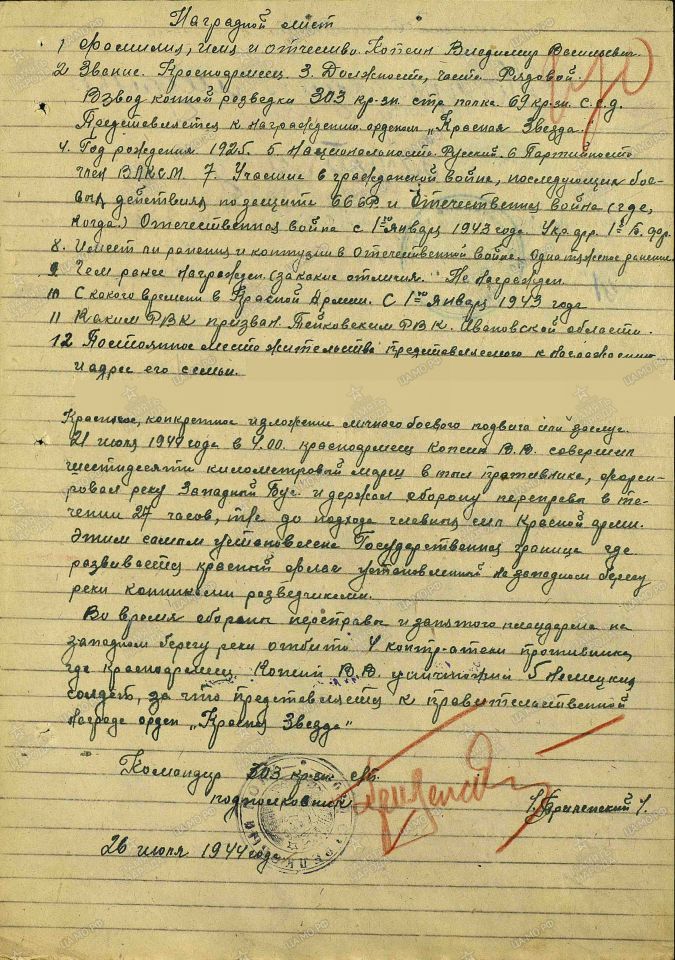 Наградной лист
1 Фамилия, имя и отчество. Копеин Владимир Васильевич
2 Звание. Красноармеец 3. Должность, часть Рядовой.
Взвод конной разведки 303 кр-зн. стр. полка. 69 кр-зн. с.с.д.
Представляется к награждению орденом „Красная Звезда"
4. Год рождения 1925 5 Национальность. Русский. 6 Партийность
член ВЛКСМ. 7. Участие в гражданской войне, последующих бое-
вых действиях по защите СССР и Отечественная война (где,
когда.) Отечественная война с 1го января 1943 года Укр. фр. 1й Б. фр.
8. Имеет ли ранения и контузии в Отечественной войне. Одно тяжелое ранение
9 Чем ранее награжден (за какие отличия. Не награжден.
10 С какого времени в Красной Армии. С 1го Января 1943 года
11 Каким РВК призван. Тейковским РВК. Ивановской области.
12 Постоянное местожительства представляемого к награждению
и адрес его семьи.
Краткое, конкретное изложение личного боевого подвига или заслуг.
21 июля 1944 года в 4.00. красноармеец Копеин В.В. совершил
шестидесяти километровый марш в тыл противника, форси-
ровал реку Западный Буг. и держал оборону переправы в те-
чении 27 часов, т/е до подхода главных сил Красной армии.
Этим самым установлена Государственная граница где
развивается красный флаг установленный на западном берегу
реки конными разведчиками.
Во время обороны переправы и занятого плацдарма на
западном берегу реки отбито 4 контр-атаки противника,
где красноармеец Копеин В.В. уничтожил 5 немецких
солдат, за что представляется к правительственной
награде орден „Красная Звезда"
Командир 303 кр-зн. сп.
подполковник
26 июля 1944 года
ЦАМО.РФ